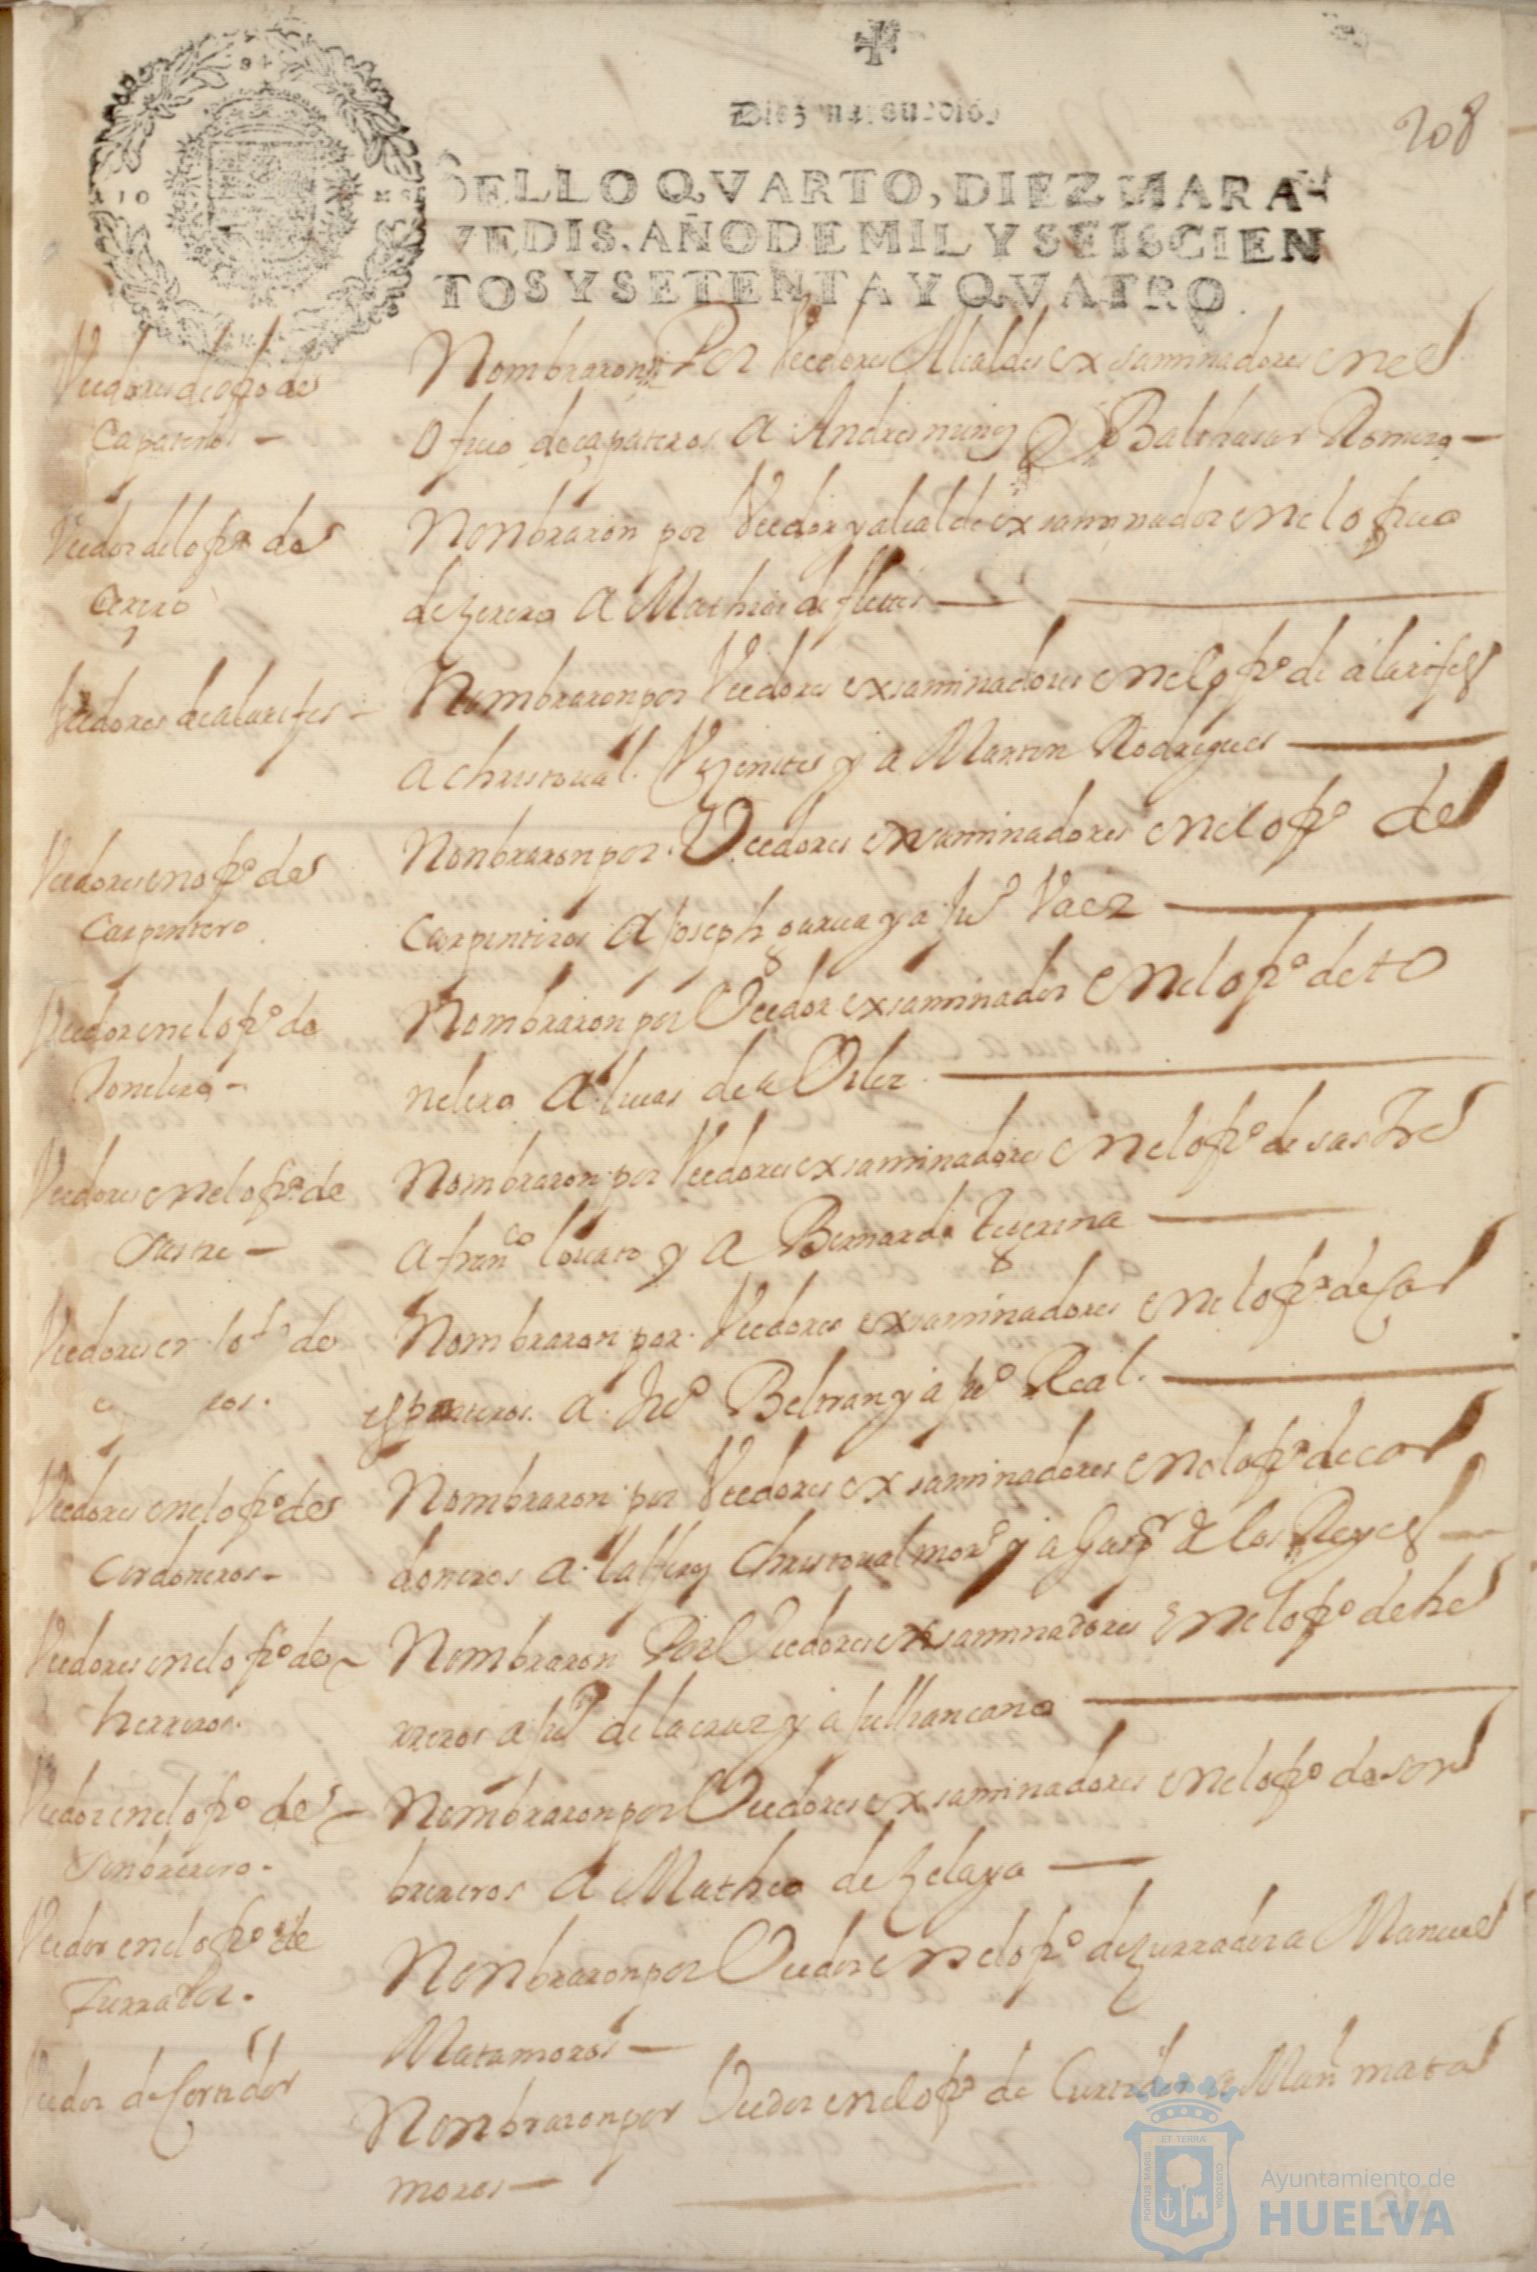 Diez marauedis
208
SELLO QVARTO, DIEZ MARA-
VEDIS, AÑO DE MIL Y SEISCIEN
TOS Y SETENTA Y QVATRO.
Veedores de ofo de
çapateros –
Nombraron Por Veedores Alcaldes exsaminadores en el
ofiçio de çapateros a Andres nuñez y Balthasar Romero –
Veedor del ofº de
çerero
Nonbraron por Veedor y alcalde exsaminador en el ofiçio
de zerero a Mathias de fleites –
Veedores de alarifes –
Nombraron por Veedores exsaminadores en el ofº de alarifes
a christoual Vizentes y a Martin Rodrigues –
Veedores en ofº de
Carpintero
Nonbraron por Veedores exsaminadores en el ofº de
Carpinteros a Joseph garcia y a Juº Vaez –
Veedor en el ofº de
Tonelero –
Nombraron por Veedor exsaminador en el ofº de to
nelero a lucas de
Veedores en el ofº de
Sastre –
Nombraron por Veedores exsaminadores en el ofº de sastre
a franco y a Bernardo Tegerina –
Veedores en el ofº de
ros.
Nombraron por Veedores exsaminadores en el ofº de
a Juº Beltran y a Juº Real. –
Veedores en el ofº de
Cordoneros –
Nombraron por Veedores exsaminadores en el ofº de cor
doneros a christoual morº y a Gaspr de los Reyes –
Veedores en el ofº de –
herreros.
Nombraron Por Veedores exsaminadores en el ofº de he
rreros a Juº de la cruz y a –
Veedor en el ofº de –
Sonbrerero –
Nombraron por Veedores exsaminadores en el ofº de son
brereros a Matheo de Zelaya –
Veedor en el ofº de
Zurrador.
Nonbraron por Veedor en el ofº de Zurrador a Manuel
Matamoros –
Veedor de Cortidor
Nonbraron por Veedor en el ofº de Curtidor a Manl mata
moros –
PORTUS MARIS ET TERRAE CUSTODIA
Ayuntamiento de
HUELVA